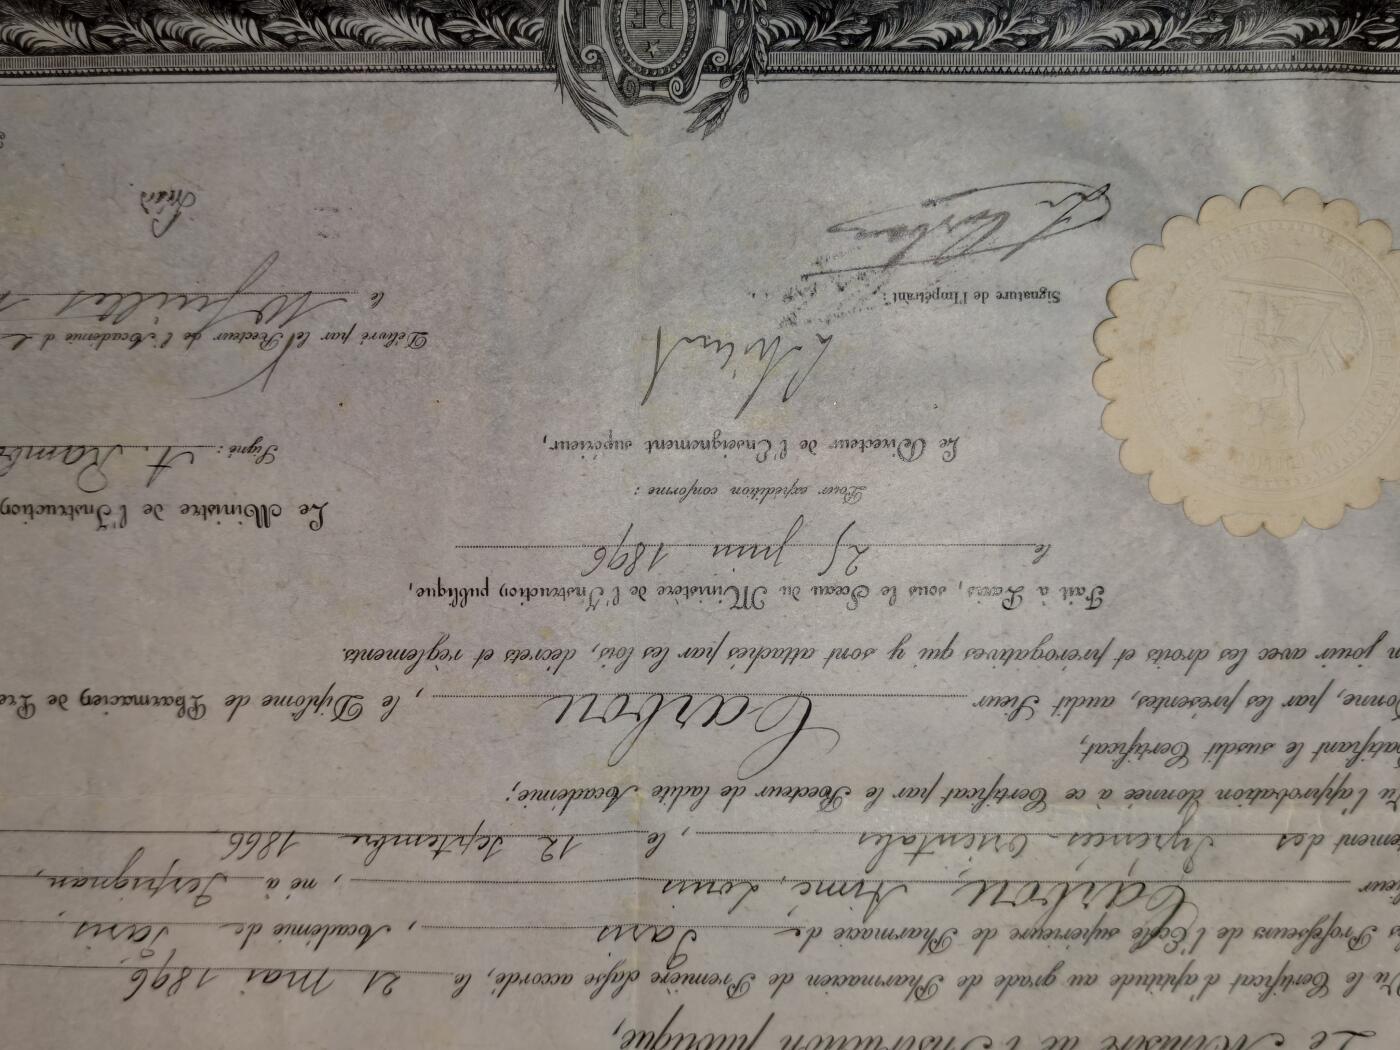 Le Ministre de l'Instruction publique,
Vu le Certificat d'aptitude au grade de Pharmacien de Première classe accordé, le 21 mai 1896,
Professeurs de l'École supérieure de Pharmacie de Paris, Académie de Paris
Carbou, Aimé, Louis, né à Perpignan,
des Pyrénées Orientales, le 12 Septembre 1866
Vu l'approbation donnée à ce Certificat par le Recteur de ladite Académie;
Ratifiant le susdit Certificat,
Donne, par les présentes, audit Sieur Carbou, le Diplôme de Pharmacien de
jouir avec les droits et prérogatives qui y sont attachés par les lois, décrets et règlements.
Fait à Paris, sous le Sceau du Ministère de l'Instruction publique,
le 25 juin 1896
Pour expédition conforme :
Le Directeur de l'Enseignement supérieur,
Signature de l'Impétrant :
Le Ministre de l'Instruction
Signé : A.
Délivré par le Recteur de l'Académie de
le 10 juillet
RF